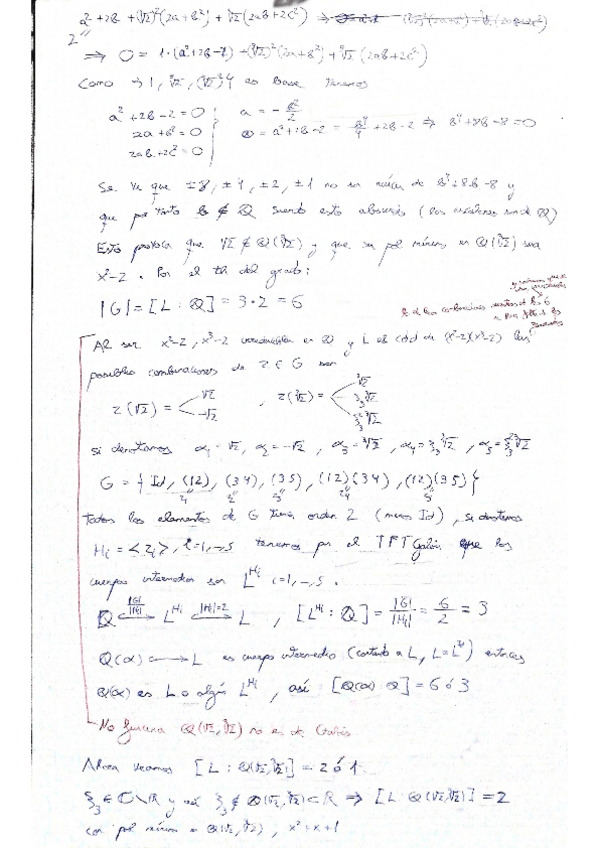 a² + 2b + (∛2)²(2a+b²) + ∛2(2ab+2c²) ⇒
2"
⇒ 0 = 1·(a²+2b-2) + (∛2)²(2a+b²) + ∛2 (2ab+2c²)
Como 1, ∛2, (∛2)² es base tenemos
a² + 2b - 2 = 0
2a + b² = 0
2ab + 2c² = 0
a = - b²/2
0 = a²+2b-2 = b⁴/4 + 2b - 2 ⇒ b⁴+8b-8=0
Se ve que ±8, ±4, ±2, ±1 no son raíces de b⁴+8b-8 y
que por tanto b ∉ ℚ siendo esto absurdo (los son de ℚ)
Esto provoca que √2 ∉ ℚ(∛2) y que su pol mínimo en ℚ(∛2) sea
x²-2. Por el th del grado:
|G| = [L : ℚ] = 3·2 = 6
Al ser x²-2, x³-2 irreducibles en ℚ y L el cdd de (x²-2)(x³-2) las
posibles combinaciones de z ∈ G son
z(√2) = √2, -√2 , z(∛2) = ∛2, ξ₃∛2, ξ₃²∛2
si denotamos α₁ = √2, α₂ = -√2, α₃ = ∛2, α₄ = ξ₃∛2, α₅ = ξ₃²∛2
G = { Id, (12), (34), (35), (12)(34), (12)(35) }
Todos los elementos de G tienen orden 2 (menos Id), si denotamos
Hᵢ = <zᵢ>, i=1,-,5 tenemos por el TFTGalois que los
cuerpos intermedios son L^Hᵢ i=1,-,5.
ℚ |G|/|Hᵢ| L^Hᵢ |Hᵢ|=2 L , [L^Hᵢ : ℚ] = |G|/|Hᵢ| = 6/2 = 3
ℚ(α) → L es cuerpo intermedio (contando a L, L = L^Id) entonces
ℚ(α) es L o algún L^Hᵢ, así [ℚ(α) : ℚ] = 6 ó 3
No funciona ℚ(√2, ∛2) no es de Galois
Ahora veamos [L : ℚ(√2,∛2)] = 2 ó 1
ξ₃ ∈ ℂ\ℝ y así ξ₃ ∉ ℚ(√2,∛2) ⊂ ℝ ⇒ [L : ℚ(√2,∛2)] = 2
con pol mínimo en ℚ(√2,∛2), x²+x+1